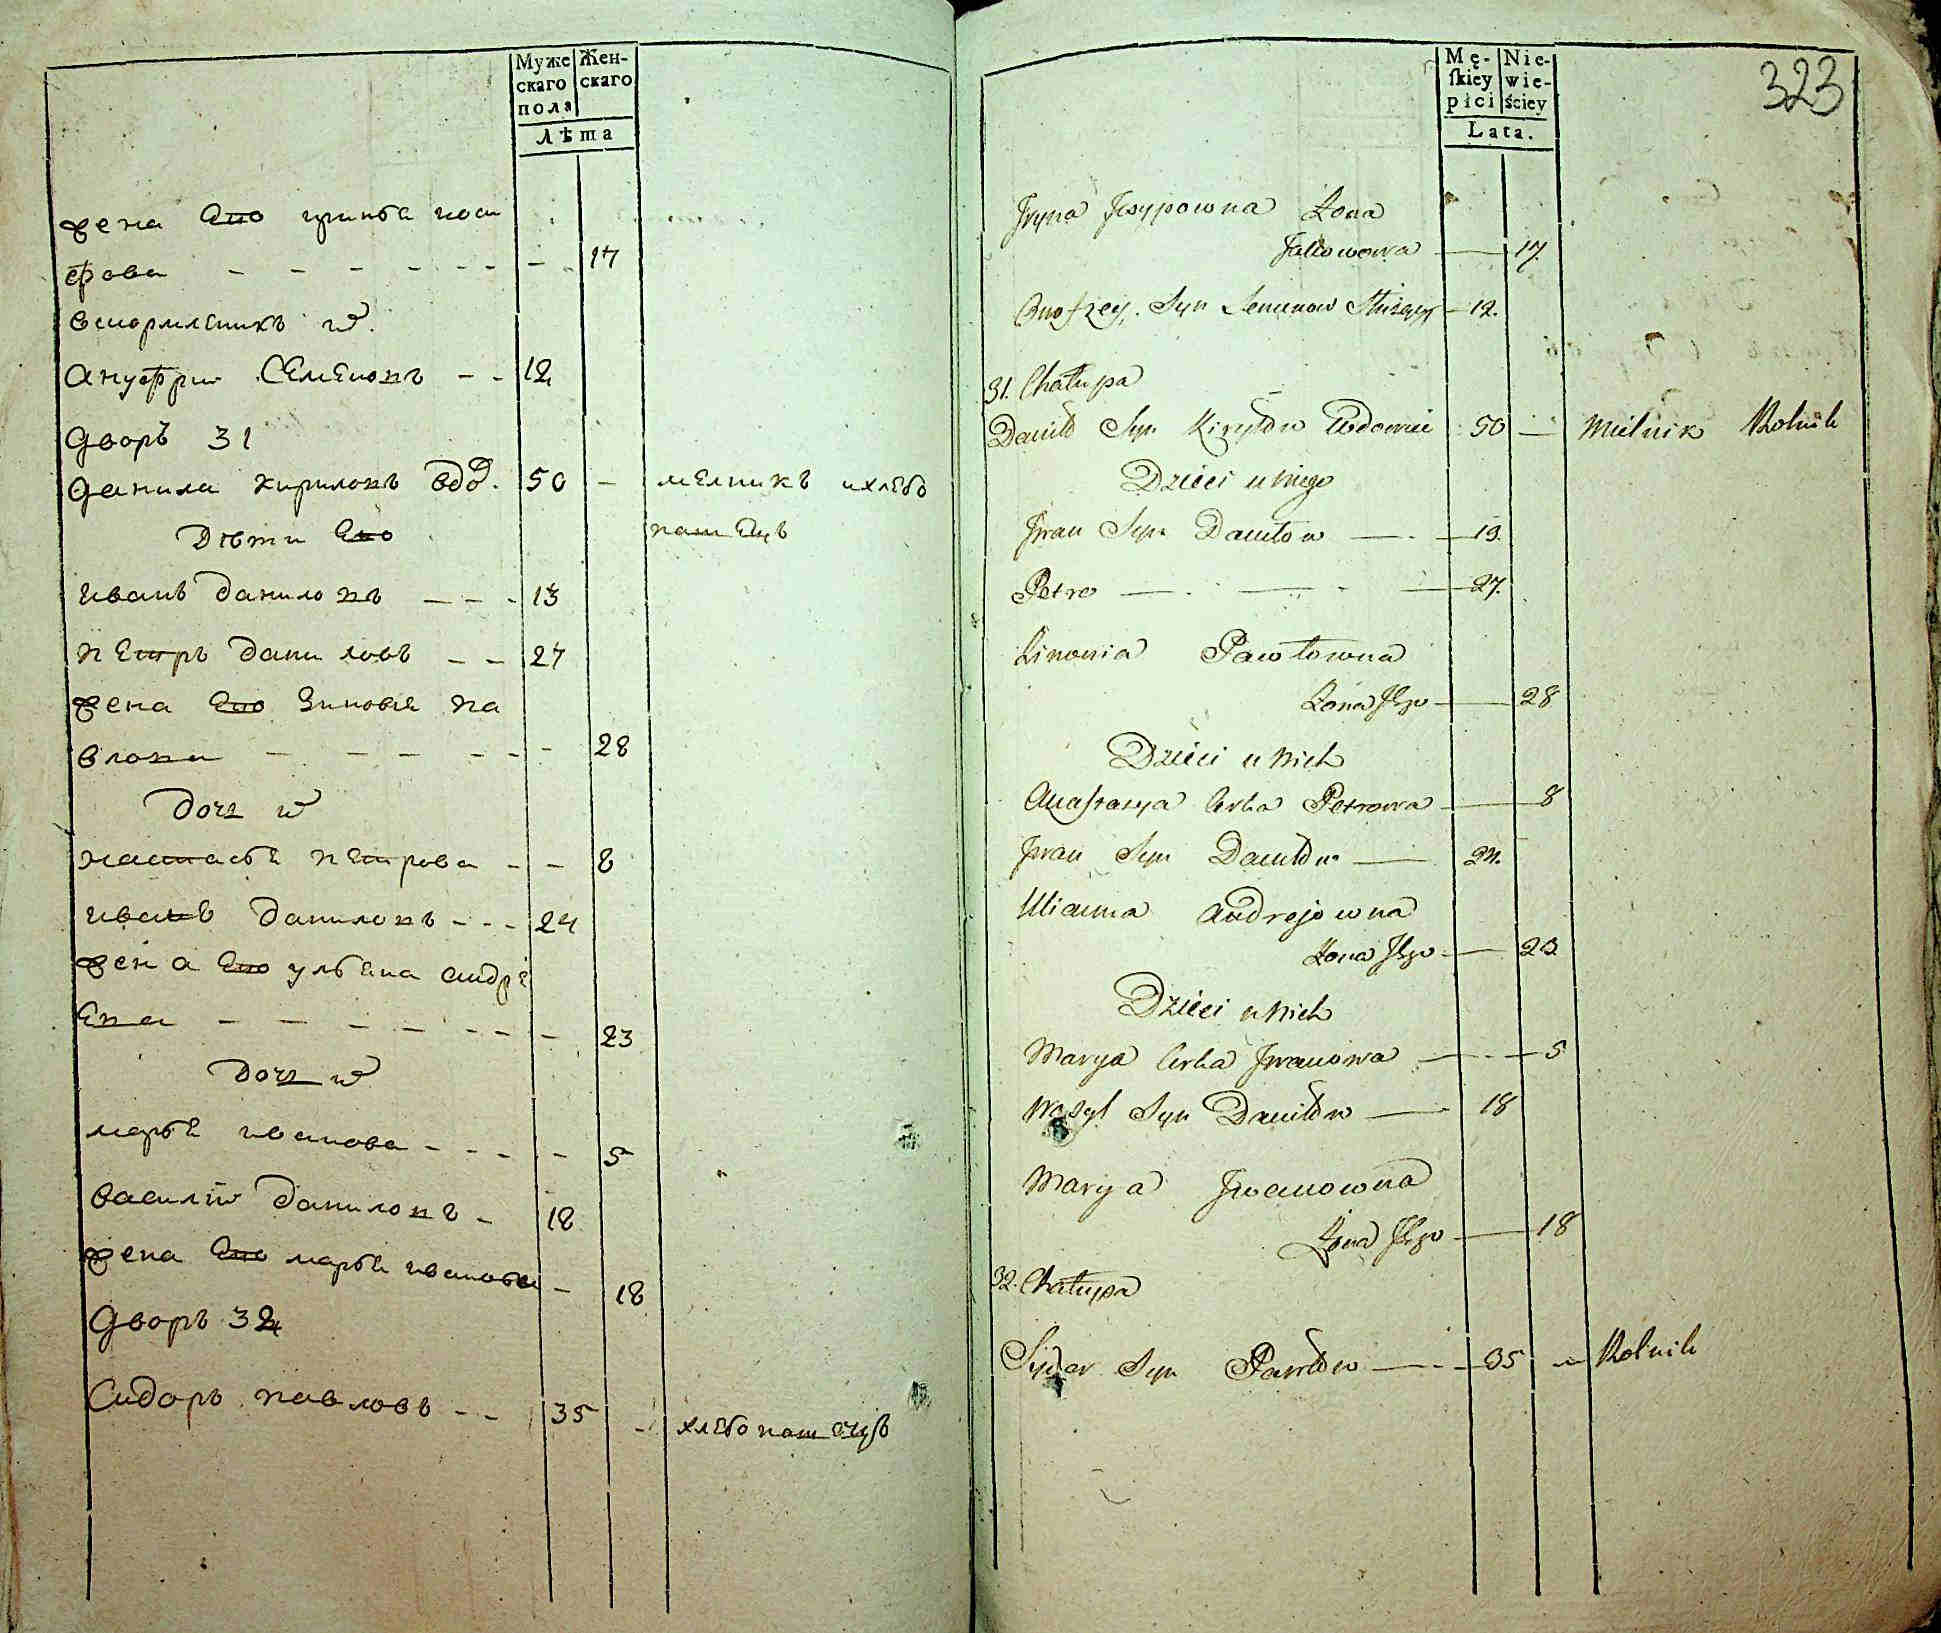 Муже
скаго
пола
Жен-
скаго
Лѣта
жена Его ирина иоси
фова - - - - - - - 17
вскормленикъ
Ануфри Семеновъ - - 12
Дворъ 31
Данила Кириловъ вдо. 50 - мелникъ и хлебо
пашецъ
Дѣти Его
иванъ даниловъ - - - 13
петръ даниловъ - - 27
жена Его зиновіа па
влова - - - - - - 28
дочь
настасьа петрова - - 8
иванъ даниловъ - - - 24
жена Его ульяна андре
Ева - - - - - - - 23
дочь
марьа иванова - - - - - 5
василій даниловъ - 18
жена Его марьа иванова - 18
Дворъ 32
Сидоръ павловъ - - 35 - хлебопашецъ
Mę-
skiey
płci
Nie-
wie-
ściey
Lata.
323
Iryna Jesypowna Żona
Jałkowowa — 17.
Onofrey. Syn Semenow Służący — 12.
31. Chałupa
Daniło Syn Kiryłow Wdowiec 50 — Mielnik Rolnik
Dzieci u niego
Iwan Syn Daniłow — . — 13.
Petro — . — - — 27.
Zinowia Pawłowna
Żona Jego — 28
Dzieci u nich
Anastasya Corka Petrowa — 8
Iwan Syn Daniłow — 24.
Ulianna Andrejowna
Żona Jego — 23.
Dzieci u nich
Marya Corka Iwanowa — . — 5
Wasyl Syn Daniłow — 18
Marya Iwanowna
Żona Jego — 18
32. Chałupa
Sydor Syn Pawłow — - — 35 — Rolnik